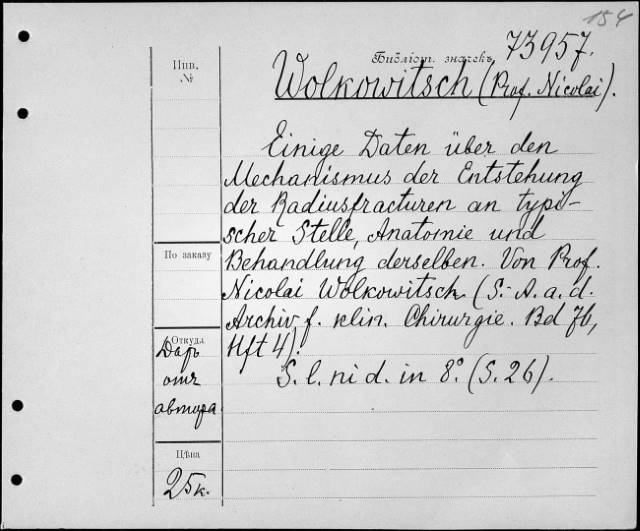 154
Библіот. значекъ 73957.
Инв.
№
Wolkowitsch (Prof. Nicolai).
Einige Daten über den
Mechanismus der Entstehung
der Radiusfracturen an typi-
scher Stelle, Anatomie und
Behandlung derselben. Von Prof.
Nicolai Wolkowitsch (S.-A. a. d.
Archiv f. klin. Chirurgie. Bd 76,
Hft 4).
S. l. ni d. in 8º. (S. 26).
По заказу
Откуда
Даръ
отъ
автора
Цѣна
25 к.